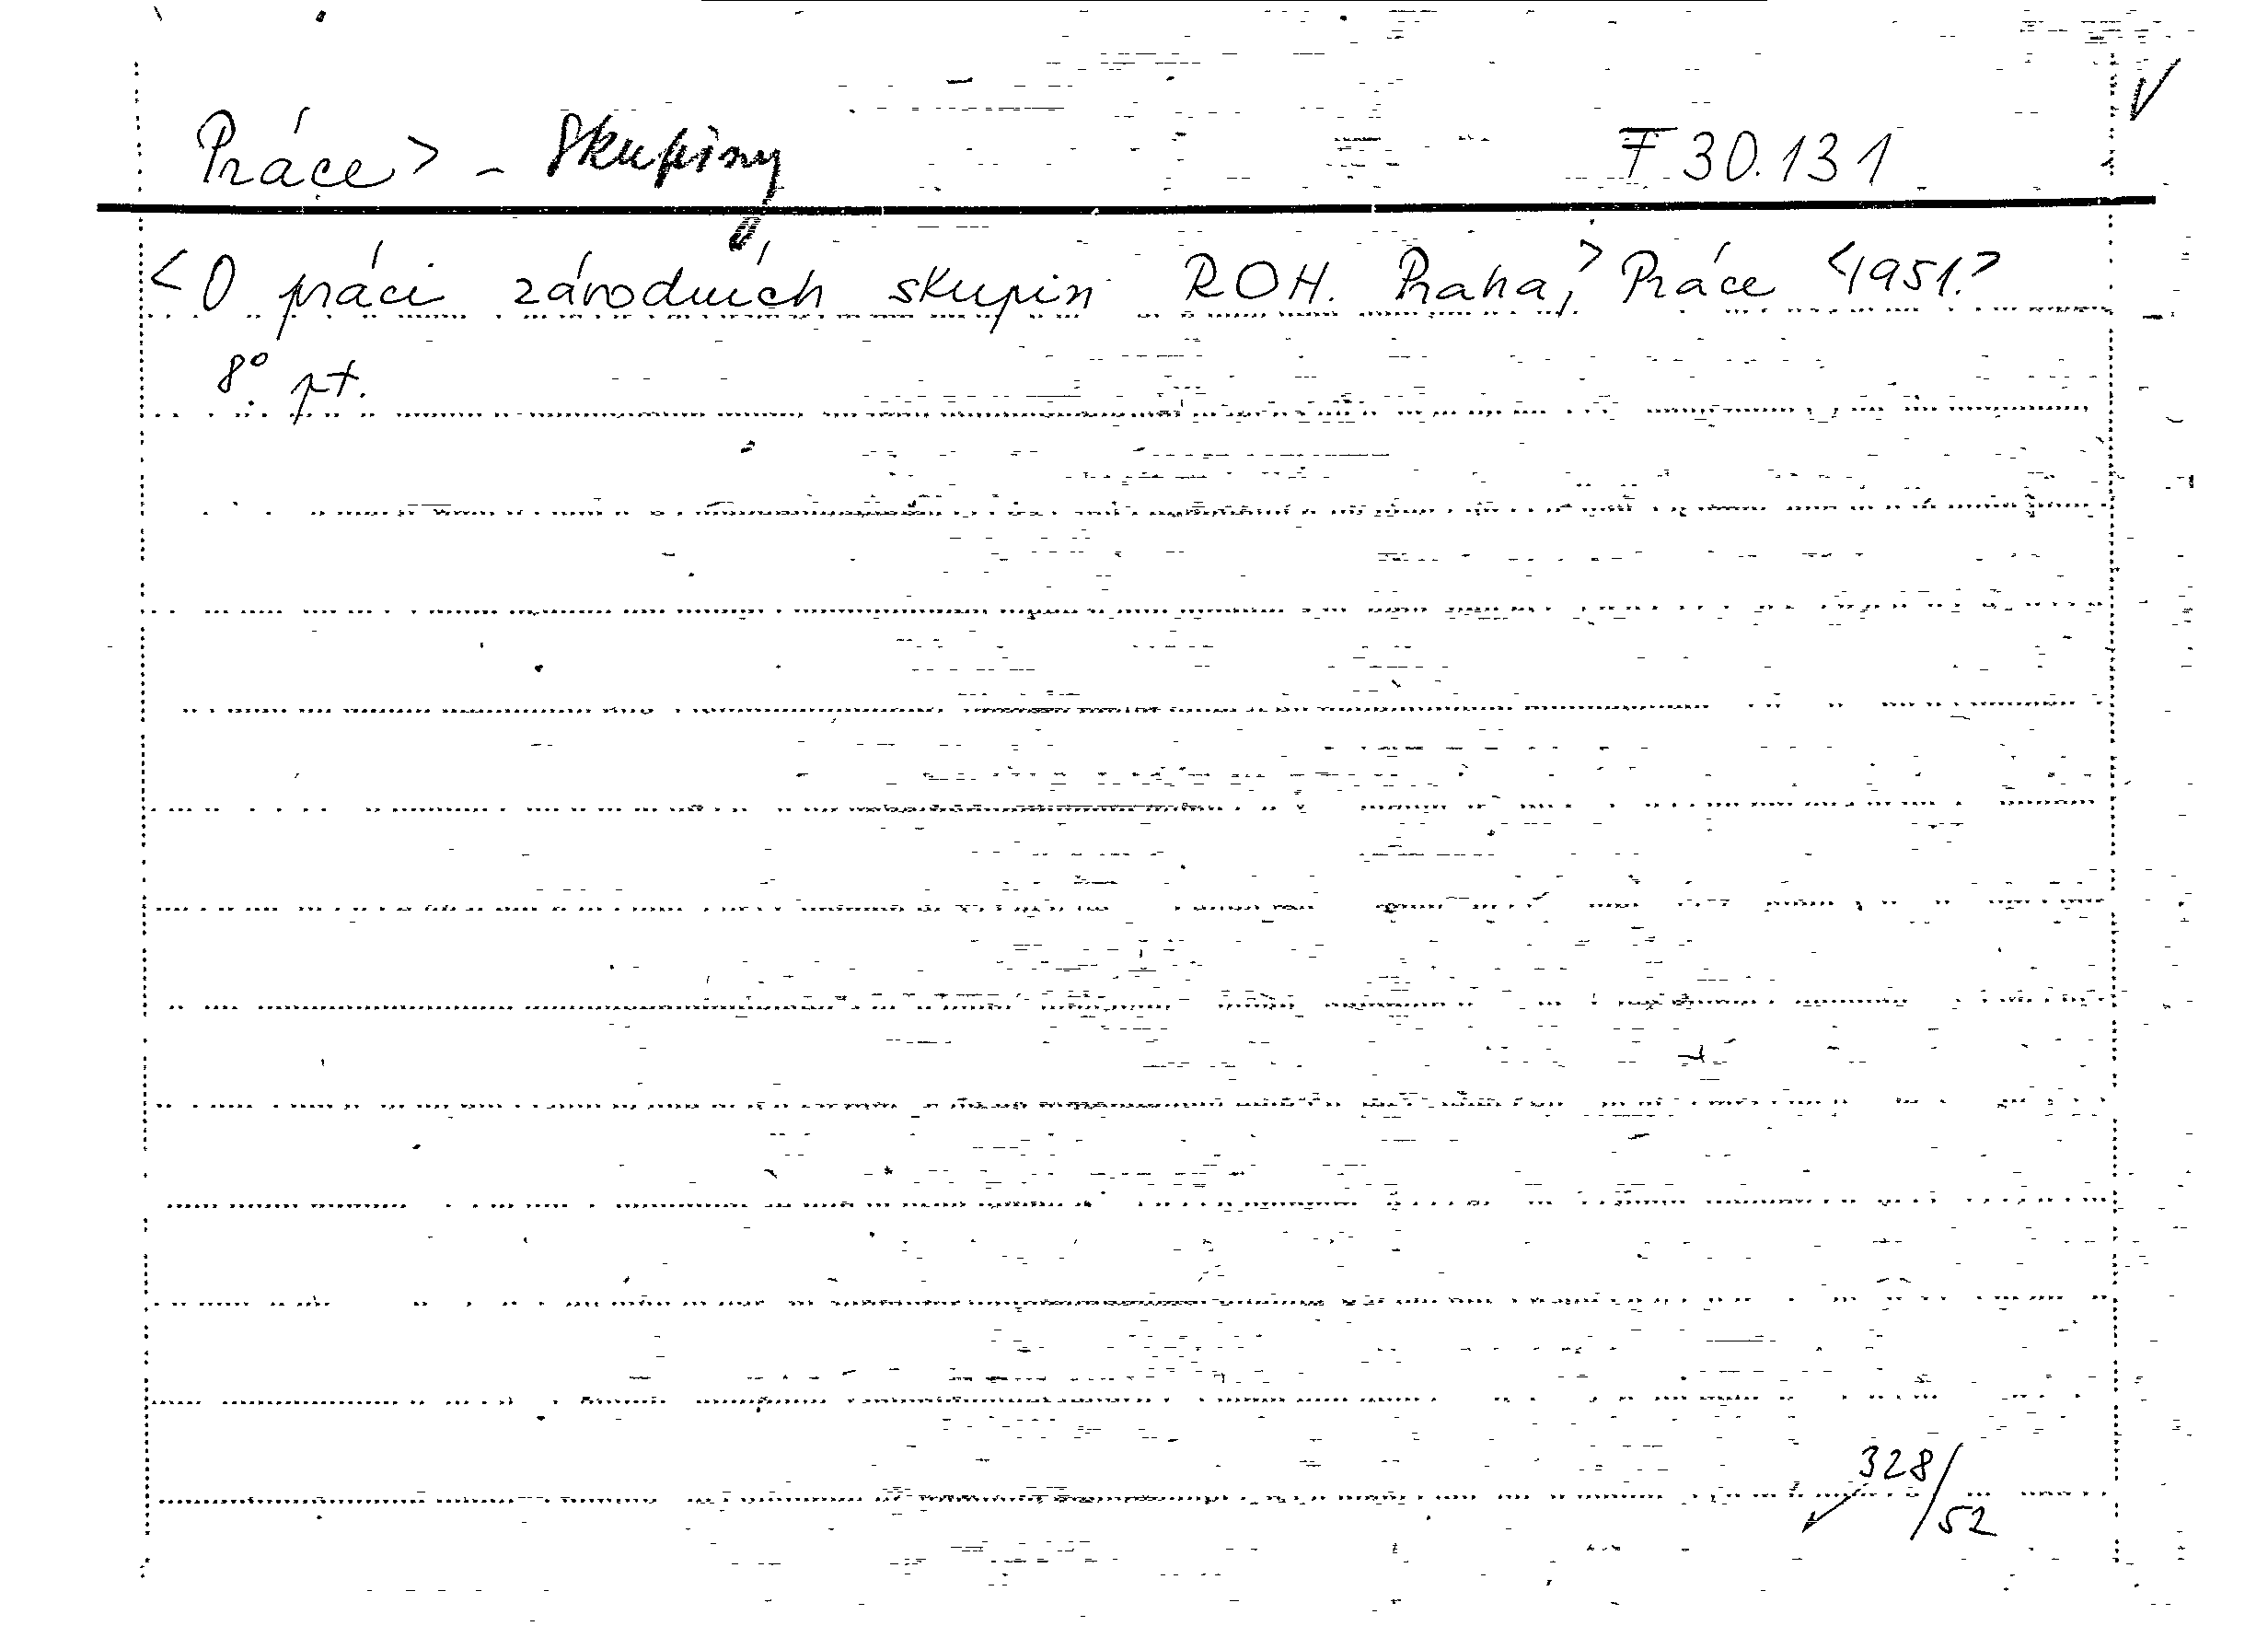 Práce> - skupiny F 30.131
<O práci závodních skupin ROH. Praha,> Práce <1951.>
8° pt.
328/52